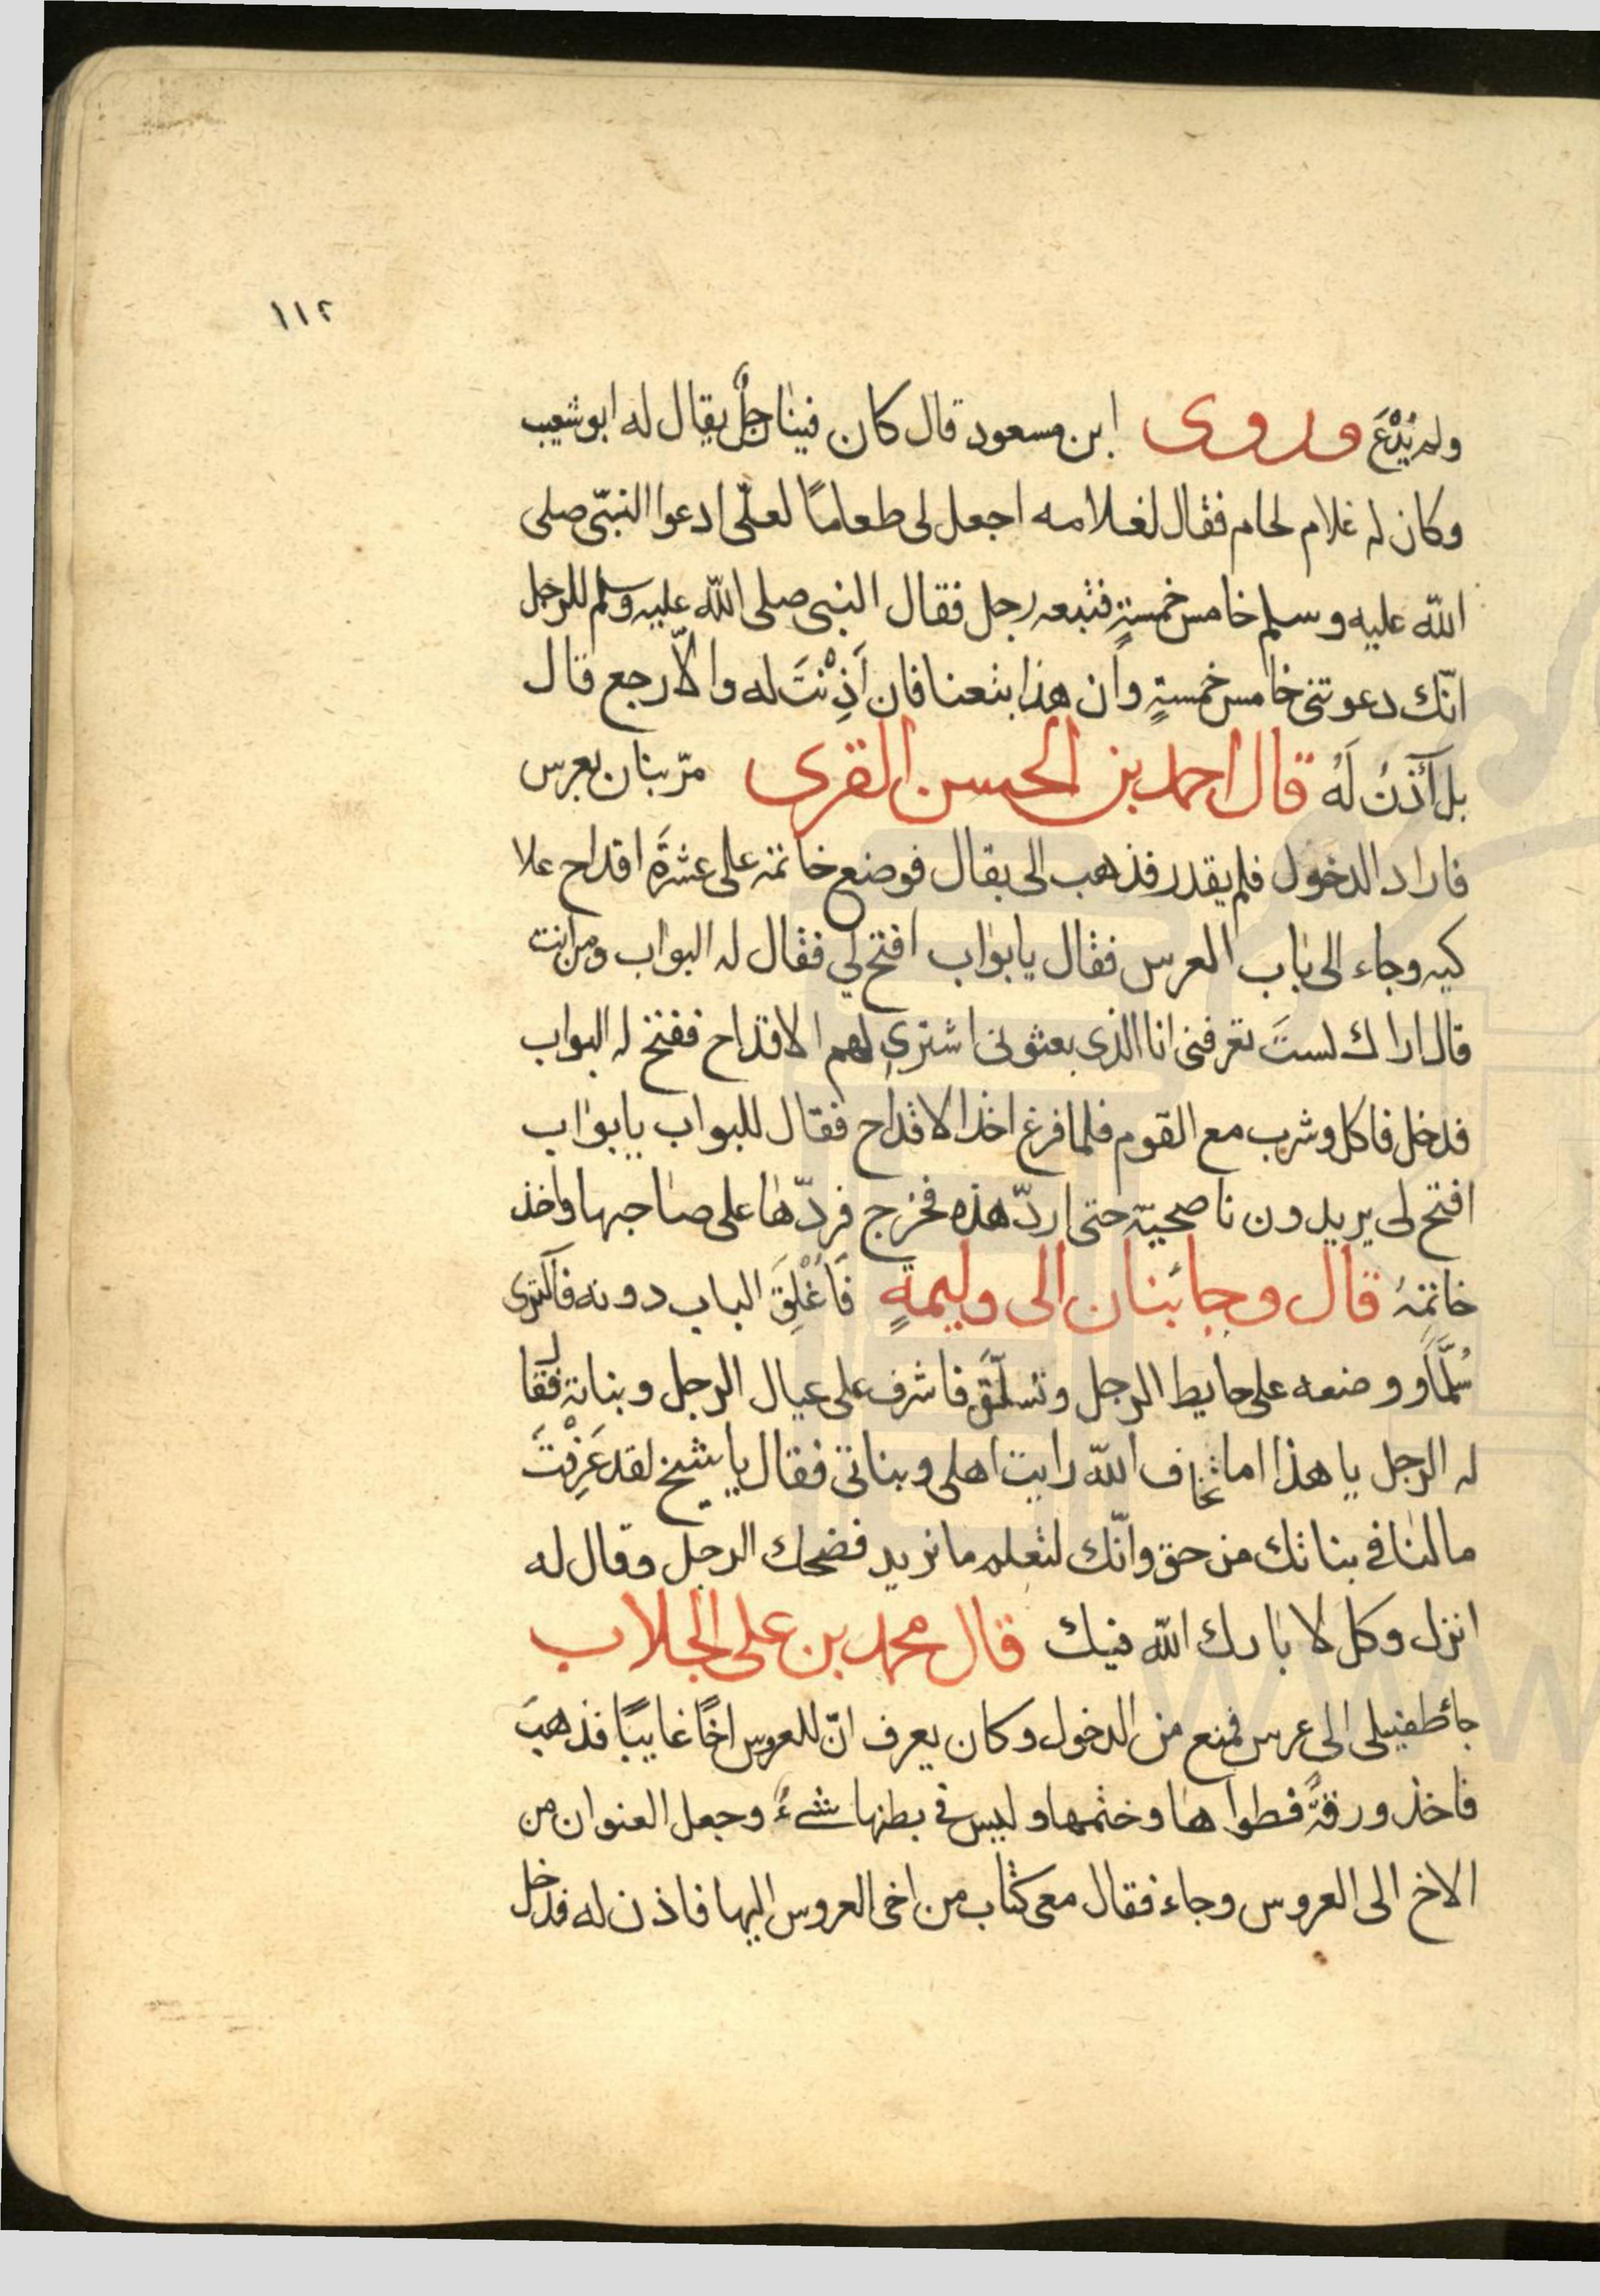 ١١٢
ولم يُدْعَ وروى ابن مسعود قال كان فينا رجلٌ يقال له ابو شعيب
وكان له غلام لحام فقال لغلامه اجعل لى طعامًا لعلّى ادعوا النبّى صلى
اللّه عليه وسلم خامس خمسةٍ فتبعه رجل فقال النبى صلى اللّه عليه وسلم للرجل
انّك دعوتنى خامس خمسةٍ وان هذا بتعنا فان اَذِنْتَ له والاّ رجع قال
بل آذنُ لَهُ قال احمد بن الحسن المقرى مرّ بنان بعرس
فاراد الدخول فلم يقدر فذهب الى بقال فوضع خاتمه على عشرَة اقداح علا
كيه وجاء الى باب العرس فقال يا بواب افتح لي فقال له البواب ومن انت
قال اراك لستَ تعرفنى انا الذى بعثونى اشترى لهم الاقداح ففتح له البواب
فدخل فاكل وشرب مع القوم فلما فرغ اخذ الاقداح فقال للبواب يا بواب
افتح لى يريدون ناصحيّه حتى اردّ هذه فخرج فردّها على صاحبها واخذ
خاتمهُ قال وجا بنان الى وليمةٍ فَاُغْلِقَ الباب دونه فاكترى
سُلَّمًا ووضعه على حايط الرجل وتسلّقَ فاشرف على عيال الرجل وبناته فقال
له الرجل يا هذا اما تخاف اللّه رايت اهلى وبناتى فقال يا شيخ لقد عَرِفْتَ
مالنا فى بناتك من حق وانّك لتعلم ما نريد فضحك الرجل وقال له
انزل وكل لا بارك اللّه فيك قال محمد بن على الجلاب
جا طفيلى الى عرس فمنع من الدخول وكان يعرف انّ للعروس اخًا غايبًا فذهبَ
فاخذ ورقةً فطواها وختمها وليس فى بطنها شىءٌ وجعل العنوان من
الاخ الى العروس وجاء فقال معى كتاب من اخى العروس اليها فاذن له فدخل